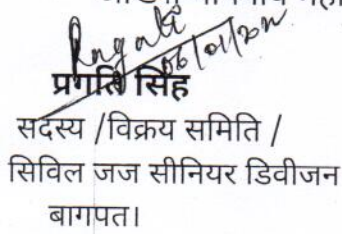 Pragati
प्रगति सिंह
सदस्य /विक्रय समिति /
सिविल जज सीनियर डिवीजन
बागपत।